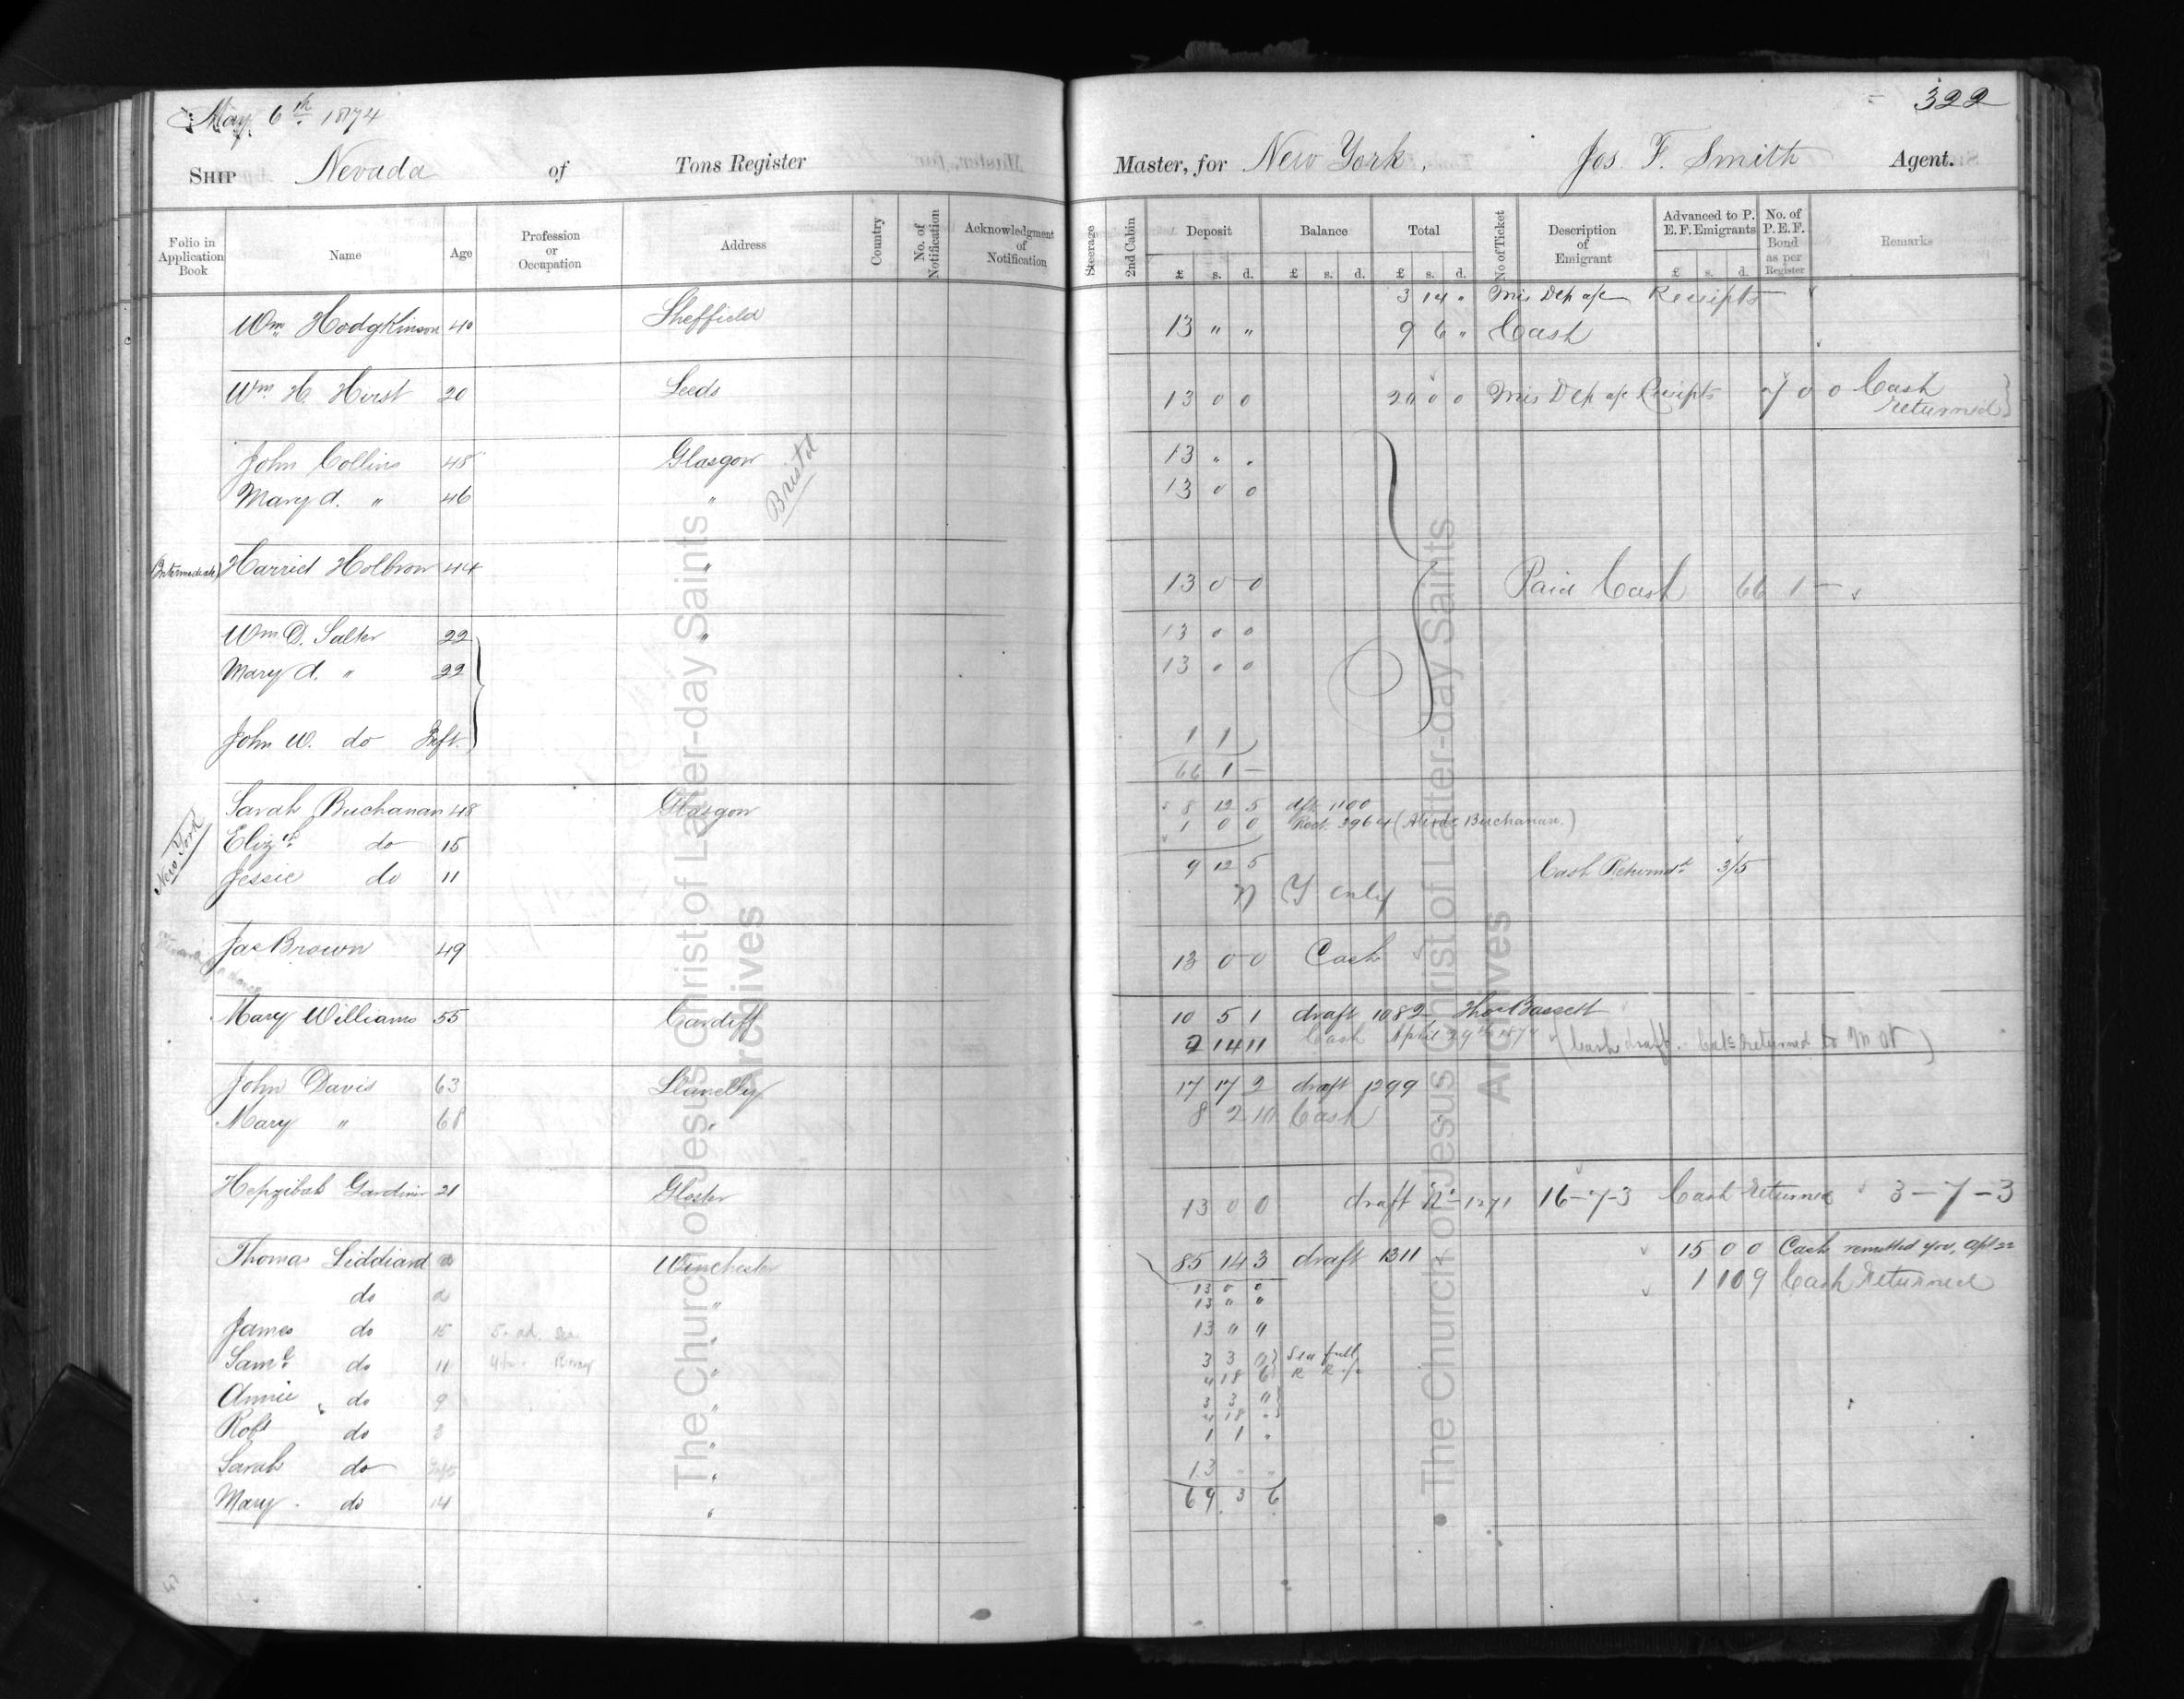 May 6th 1874
322
SHIP Nevada of Tons Register
Master, for New York. Jos. F. Smith Agent.
Folio in Application Book
Name
Age
Profession or Occupation
Address
Country
No. of Notification
Acknowledgment of Notification
Steerage
2nd Cabin
Deposit
£ s. d.
Balance
£ s. d.
Total
£ s. d.
No of Ticket
Description of Emigrant
Advanced to P. E. F. Emigrants
£ s. d.
No. of P. E. F. Bond as per Register
Remarks
3 14 " Mis Dep a/c Receipts
Wm Hodgkinson 40 Sheffield 13 " " 9 6 " Cash
Wm. H. Hirst 20 Leeds 13 0 0 20 0 0 Mis Dep a/c Receipts 7 0 0 Cash returned
John Collins 48 Glasgow 13 " "
Bristol
Mary A. " 46 " 13 0 0
(Intermediate) Harriet Holbrow 44 " 13 0 0 Paid Cash 66 1 –
Wm D. Salter 22 " 13 0 0
Mary A. " 22 13 0 0
John W. do Inft. 1 1
66 1 –
New York
Sarah Buchanan 48 Glasgow 8 12 5 dft. 1100
1 0 0 Rect. 3964 ( Buchanan.)
Elizth do 15
9 12 5 Cash Returnd 3/5
Jessie do 11
N Y only
Jas Brown 49 13 0 0 Cash
Mary Williams 55 Cardiff 10 5 1 draft 1082 Thos Bassett
2 14 11 Cash April 29th 1874 (Cash draft. returned to M W)
John Davis 63 Llanelly 17 17 2 draft 1299
Mary " 68 " 8 2 10 Cash
Hepzibah Gardiner 21 Gloster 13 0 0 draft No 1271 16–7–3 Cash returned 3–7–3
Thomas Liddiard a Winchester 85 14 3 draft 1311 15 0 0 Cash remitted you, Apl 22
13 0 0 1 10 9 Cash Returned
do a " 13 " "
James do 15 5. ad. Sea " 13 " "
Saml. do 11 " 3 3 0 Sea full
4 18 6 R R
Annie do 9 " 3 3 "
4 18 "
Robt do 3 " 1 1 "
Sarah do Inft " 13 " "
Mary do 14 " 69 3 6
The Church of Jesus Christ of Latter-day Saints
Archives
The Church of Jesus Christ of Latter-day Saints
Archives